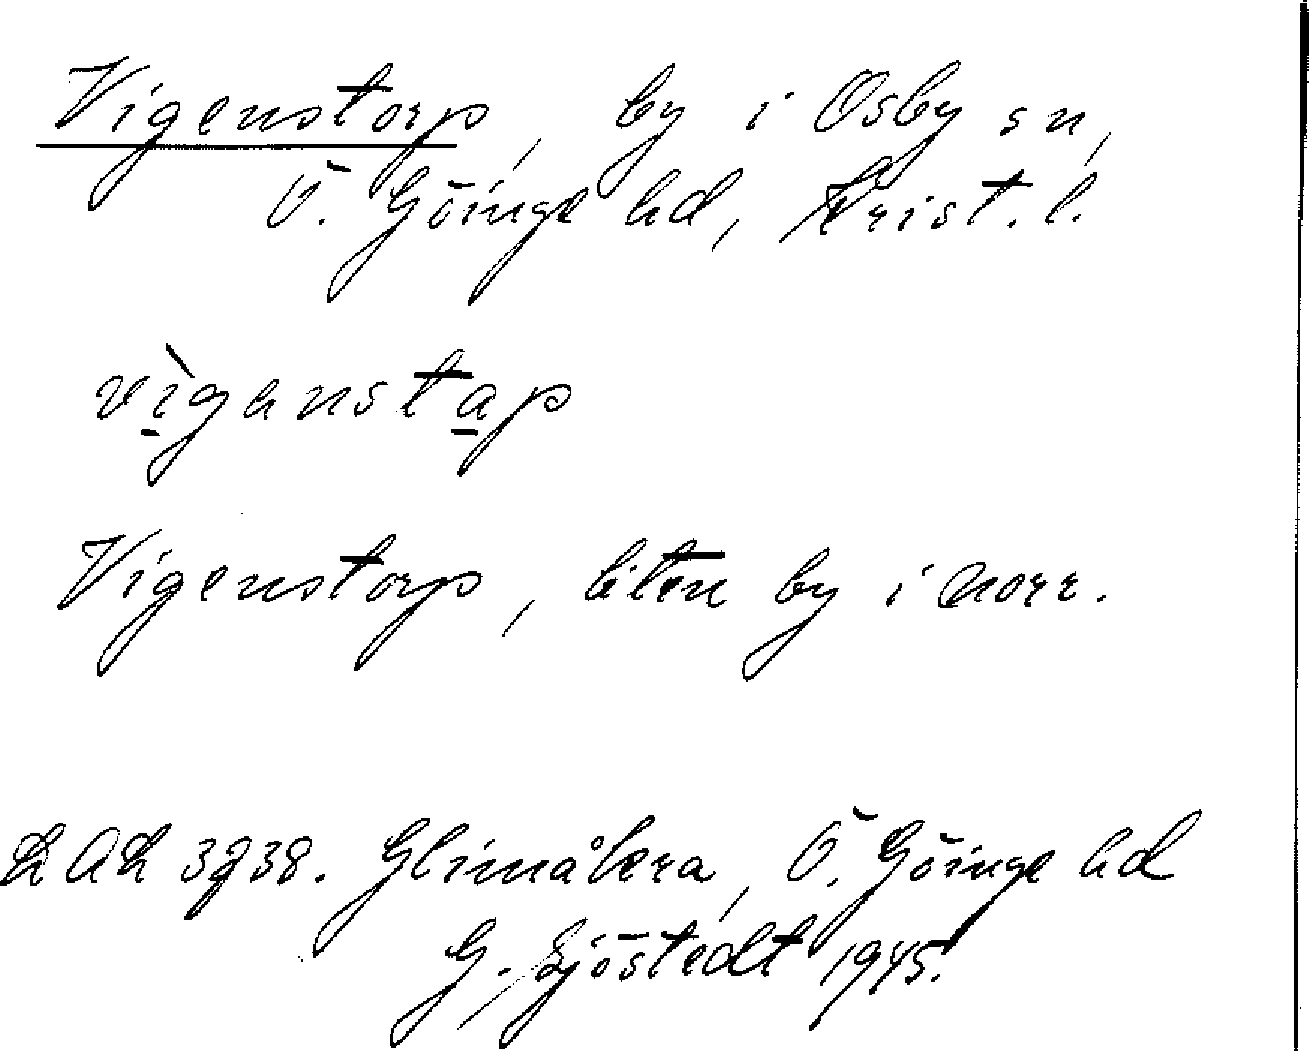 Vigenstorp, by i Osby sn,
Ö. Göinge hd, Krist. l.
vìganstap
Vigenstorp, liten by i norr.
LAL 3938. Glimåkra, Ö. Göinge hd
G. Sjöstedt 1945.